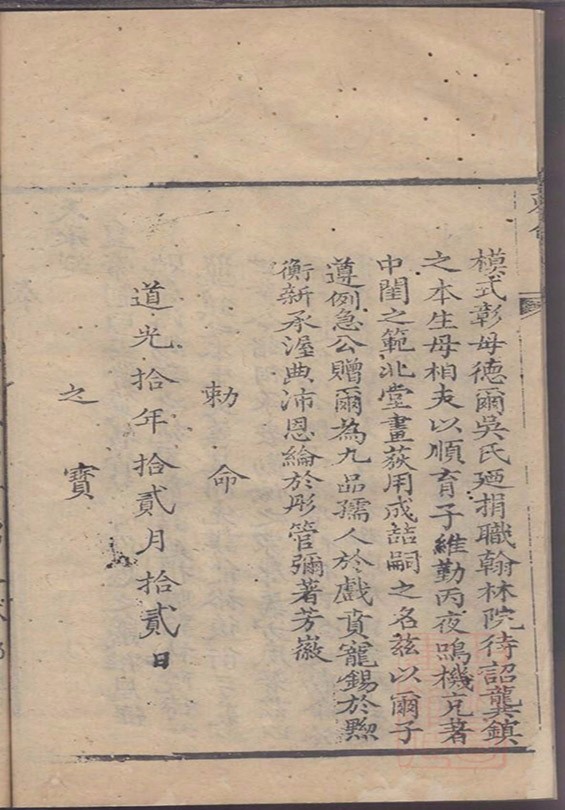 模式彰母德爾吳氏廼捐職翰林院待詔龔鎮
之本生母相夫以順育子維勤丙夜鳴機克著
中閨之範北堂畫荻用成喆嗣之名茲以爾子
遵例急公贈爾為九品孺人於戲賁寵錫於黦
衡新承渥典沛恩綸於彤管彌著芳徽
勅命
道光拾年拾貳月拾貳日
之寶